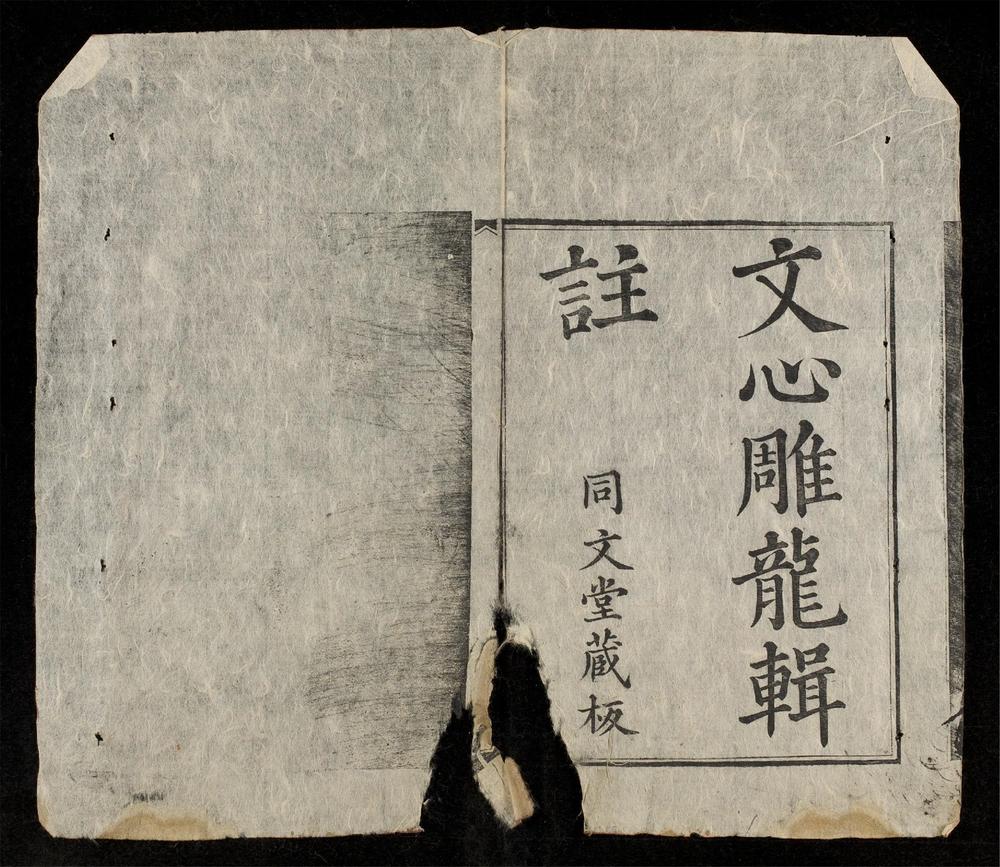 文心雕龍輯
註
同文堂蔵板